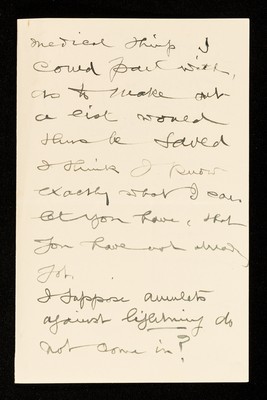 medical things I
could part with,
as to make out
a list would
thus be saved
I think I know
exactly what I can
let you have, that
you have not already
got.
I suppose amulets
against lightning do
not come in?